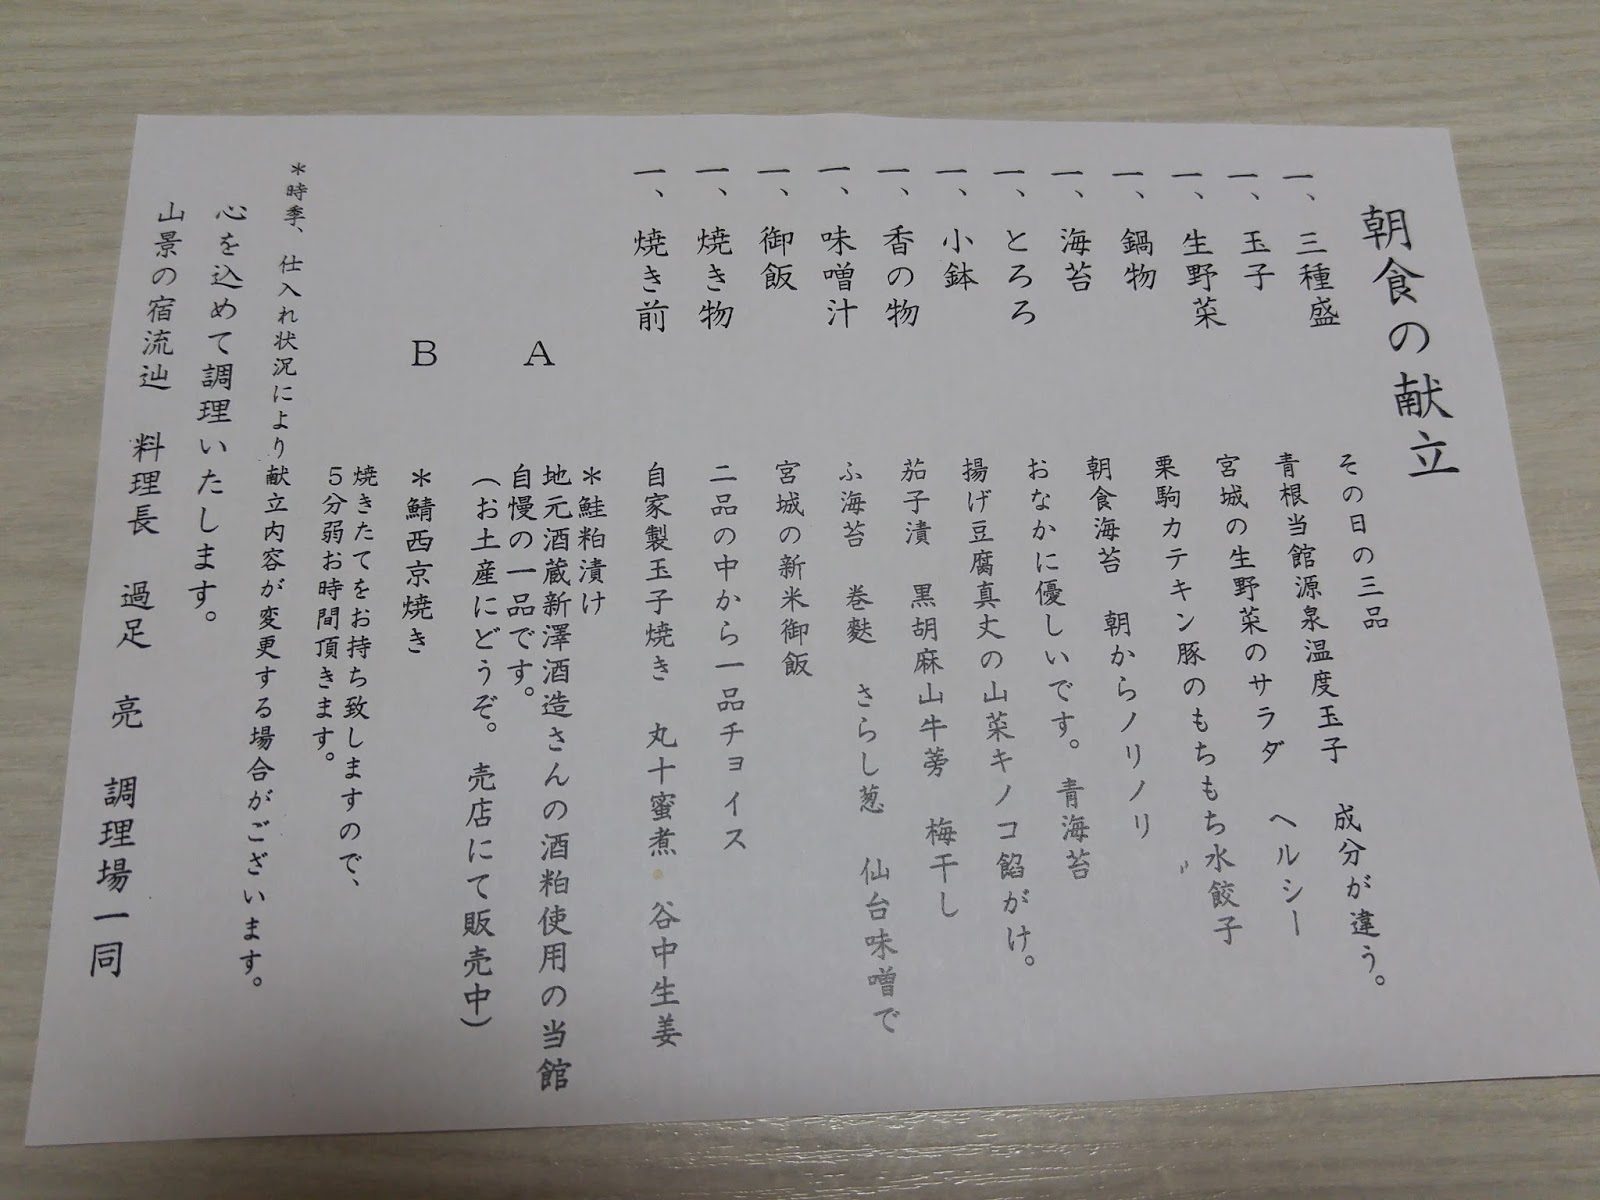 朝食の献立
一、三種盛 その日の三品
一、玉子 青根当館源泉温度玉子 成分が違う。
一、生野菜 宮城の生野菜のサラダ ヘルシー
一、鍋物 栗駒カテキン豚のもちもち水餃子
一、海苔 朝食海苔 朝からノリノリ
一、とろろ おなかに優しいです。青海苔
一、小鉢 揚げ豆腐真丈の山菜キノコ餡がけ。
一、香の物 茄子漬 黒胡麻山牛蒡 梅干し
一、味噌汁 ふ海苔 巻麩 さらし葱 仙台味噌で
一、御飯 宮城の新米御飯
一、焼き物 二品の中から一品チョイス
一、焼き前 自家製玉子焼き 丸十蜜煮・谷中生姜
A *鮭粕漬け
地元酒蔵新澤酒造さんの酒粕使用の当館
自慢の一品です。
（お土産にどうぞ。売店にて販売中）
B *鯖西京焼き
焼きたてをお持ち致しますので、
５分弱お時間頂きます。
*時季、仕入れ状況により献立内容が変更する場合がございます。
心を込めて調理いたします。
山景の宿流辿 料理長 過足 亮 調理場一同